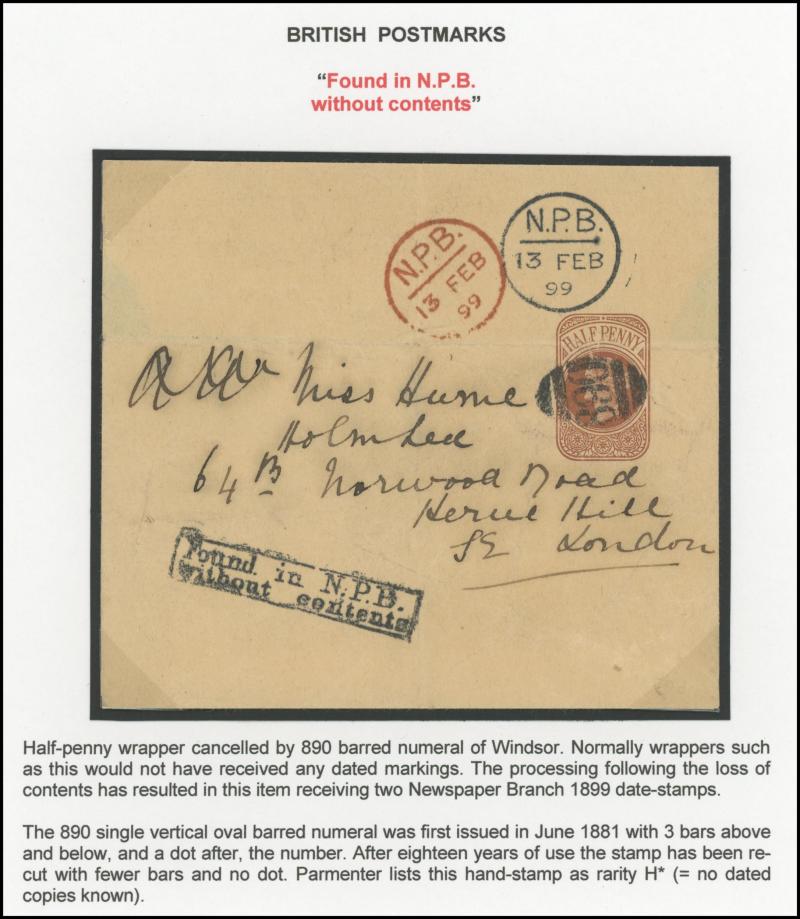 BRITISH POSTMARKS
“Found in N.P.B.
without contents”
N.P.B.
13 FEB
99
N.P.B.
13 FEB
99
HALF PENNY
890
Miss Hume
Holmlea
64 B Norwood Road
Herne Hill
SE London
Found in N.P.B.
without contents
Half-penny wrapper cancelled by 890 barred numeral of Windsor. Normally wrappers such
as this would not have received any dated markings. The processing following the loss of
contents has resulted in this item receiving two Newspaper Branch 1899 date-stamps.
The 890 single vertical oval barred numeral was first issued in June 1881 with 3 bars above
and below, and a dot after, the number. After eighteen years of use the stamp has been re-
cut with fewer bars and no dot. Parmenter lists this hand-stamp as rarity H* (= no dated
copies known).